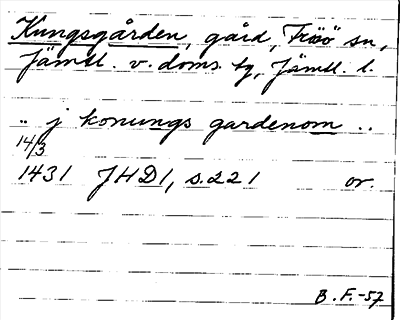 Kungsgården, gård, Frösö sn,
Jämtl. v. doms. tg, Jämtl. l.
.. j konungs gardenom ..
14/3
1431 JHD1, s.221 or.
B.F.-57